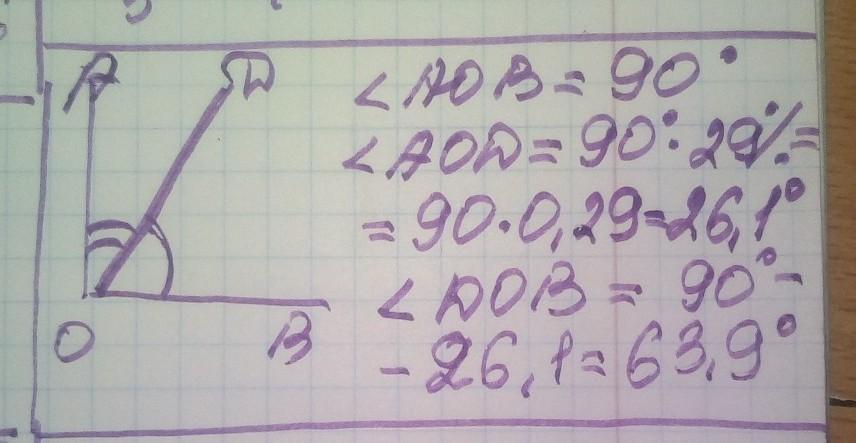 A D
O B
∠AOB = 90°
∠AOD = 90° · 29% =
= 90 · 0,29 = 26,1°
∠DOB = 90° -
- 26,1 = 63,9°